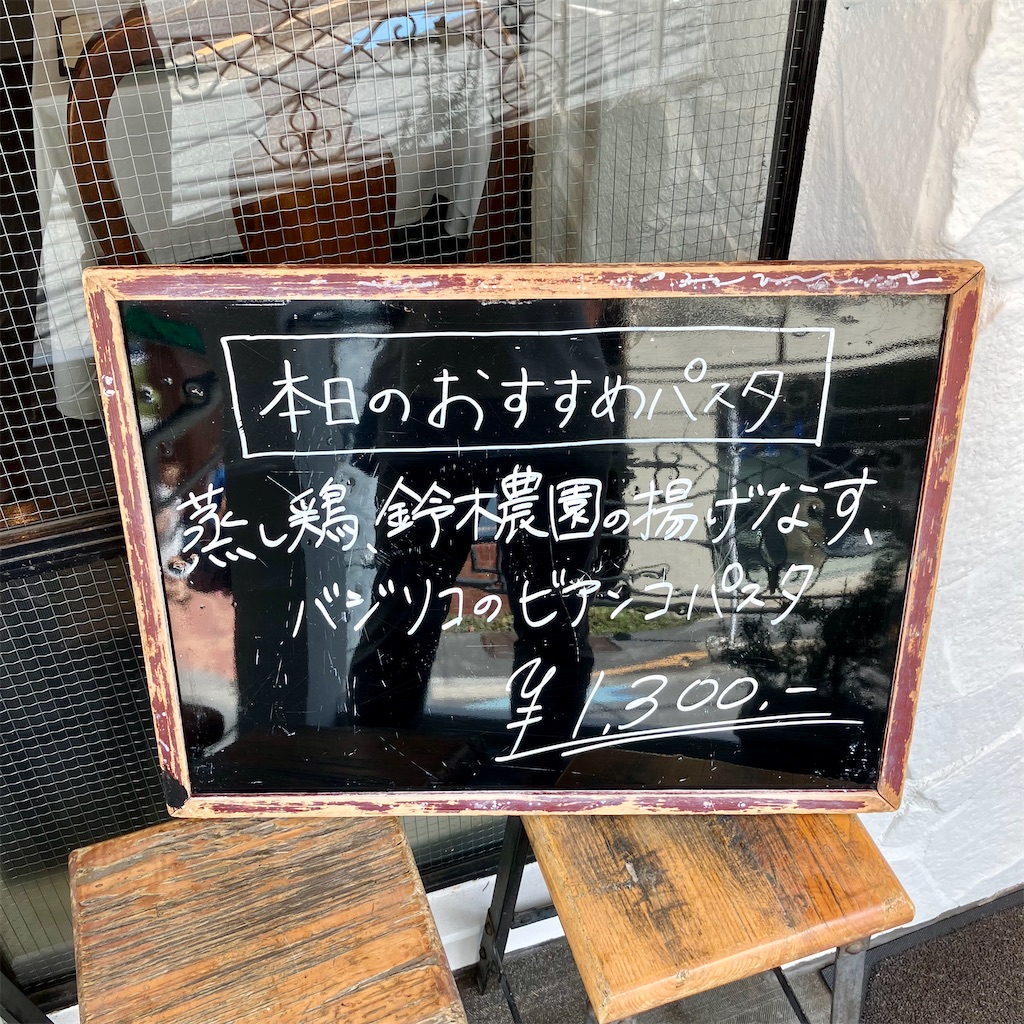 本日のおすすめパスタ
蒸し鶏、鈴木農園の揚げなす、
バジリコのビアンコパスタ
¥1,300.-